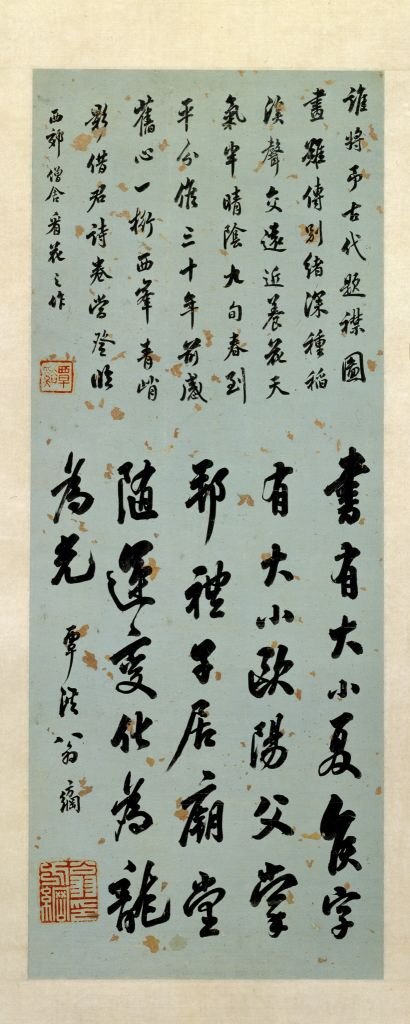 誰將弔古代題襟圖
畫雖傳別緒深種稻
溪聲交遠近養花天
氣半晴陰九旬春到
平分候三十年前感
舊心一桁西峯青峭
影借君詩卷當登臨
西郊僧舍看花之作
書有大小夏侯字
有大小歐陽父掌
邦禮子居廟堂
隨運變化為龍
為光
覃溪翁方綱
翁方綱印